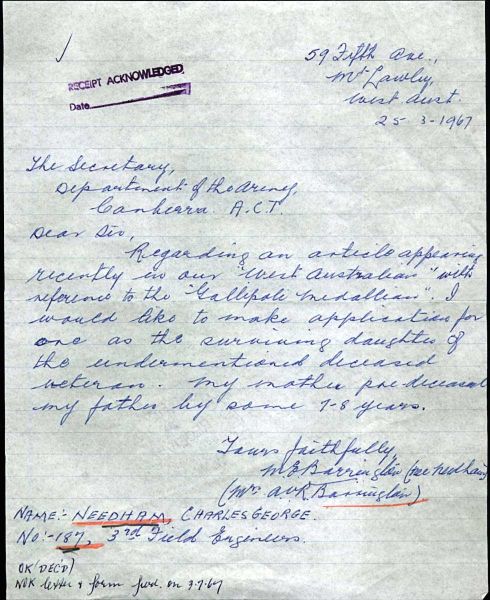 RECEIPT ACKNOWLEDGED
Date
59 Fifth Ave.,
Mt Lawley,
West Aust.
25-3-1967
The Secretary,
Department of the Army,
Canberra. A.C.T.
Dear Sir,
Regarding an article appearing
recently in our "West Australian" with
reference to the "Gallipoli Medallian". I
would like to make application for
one as the surviving daughter of
the undermentioned deceased
veteran. My mother pre-deceased
my father by some 7-8 years.
Yours faithfully,
M E Barrington (nee Needham)
(Mrs A.V.R. Barrington)
NAME:- NEEDHAM, CHARLES GEORGE.
No:- 187, 3rd Field Engineers.
OK (DEC'D)
NOK letter & form fwd. on 3.7.67